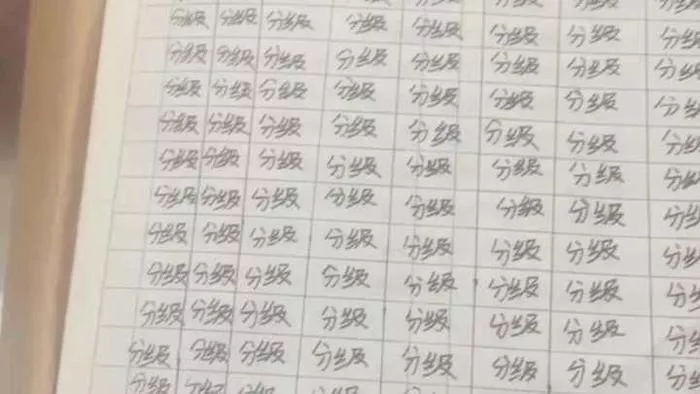 分级 分级 分级 分级 分级 分级 分级
分级 分级 分级 分级 分级 分级 分级 分级
分级 分级 分级 分级 分级 分级 分级 分级
分级 分级 分级 分级 分级 分级 分级 分级
分级 分级 分级 分级 分级 分级 分级 分级
分级 分级 分级 分级 分级 分级 分级 分级
分级 分级 分级 分级 分级 分级 分级 分级
分级 分级 分级 分级 分级 分级 分级 分级
分级 分级 分级 分级 分级 分级 分级 分级
分级 分级 分级 分级 分级 分级 分级 分级
分级 分级 分级 分级 分级 分级 分级 分级